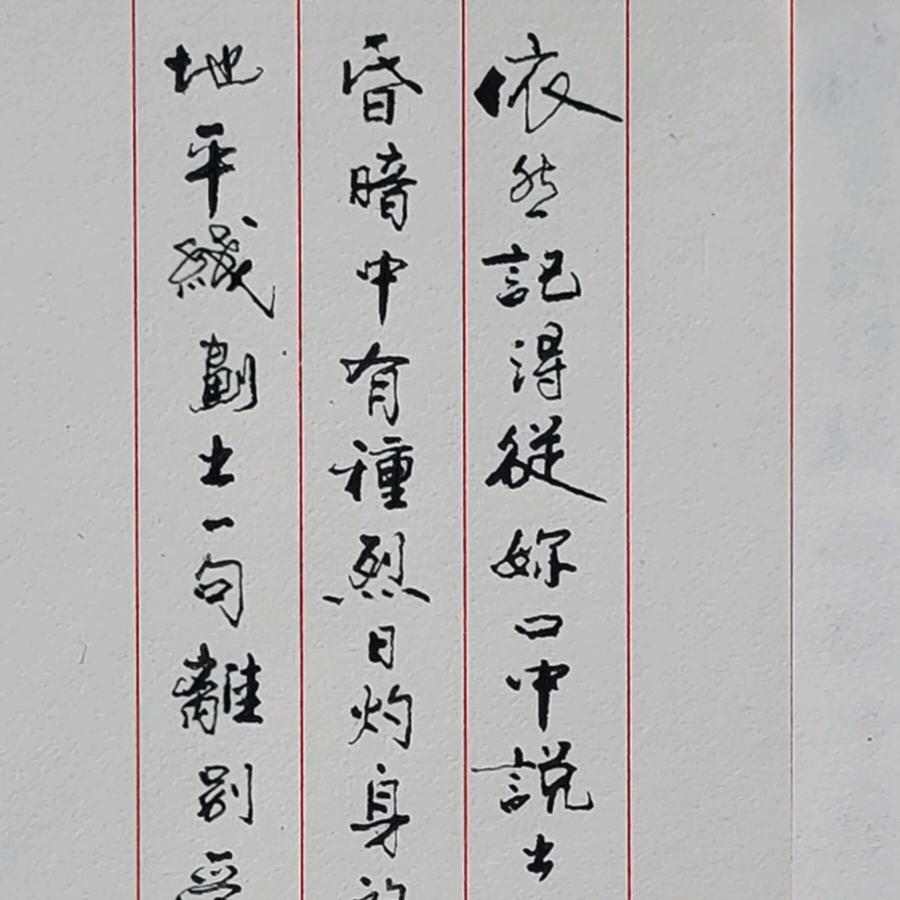 依然記得從妳口中說出
昏暗中有種烈日灼身的
地平線劃出一句離別